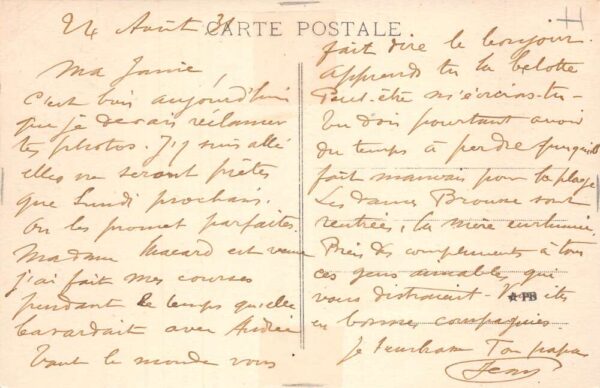 24 Août 31
CARTE POSTALE
Ma Janie,
C'est bien aujourd'hui
que je devais réclamer
tes photos. J'y suis allé
elles ne seront prêtes
que Lundi prochain.
On les promet parfaites.
Madame Macard est venue
j'ai fait mes courses
pendant le temps qu'elle
bavardait avec
Tout le monde vous
fait dire le bonjour.
Apprends tu la belotte
Peut-être m'écriras-tu-
Tu dois pourtant avoir
du temps à perdre puisqu'il
fait mauvais pour la plage
Les dames sont
rentrées, la mère enrhumée.
Près de compliments à tous
ces gens aimables qui
vous distraient - Vous êtes
en bonnes compagnies
APB
Je t'embrasse Ton papa